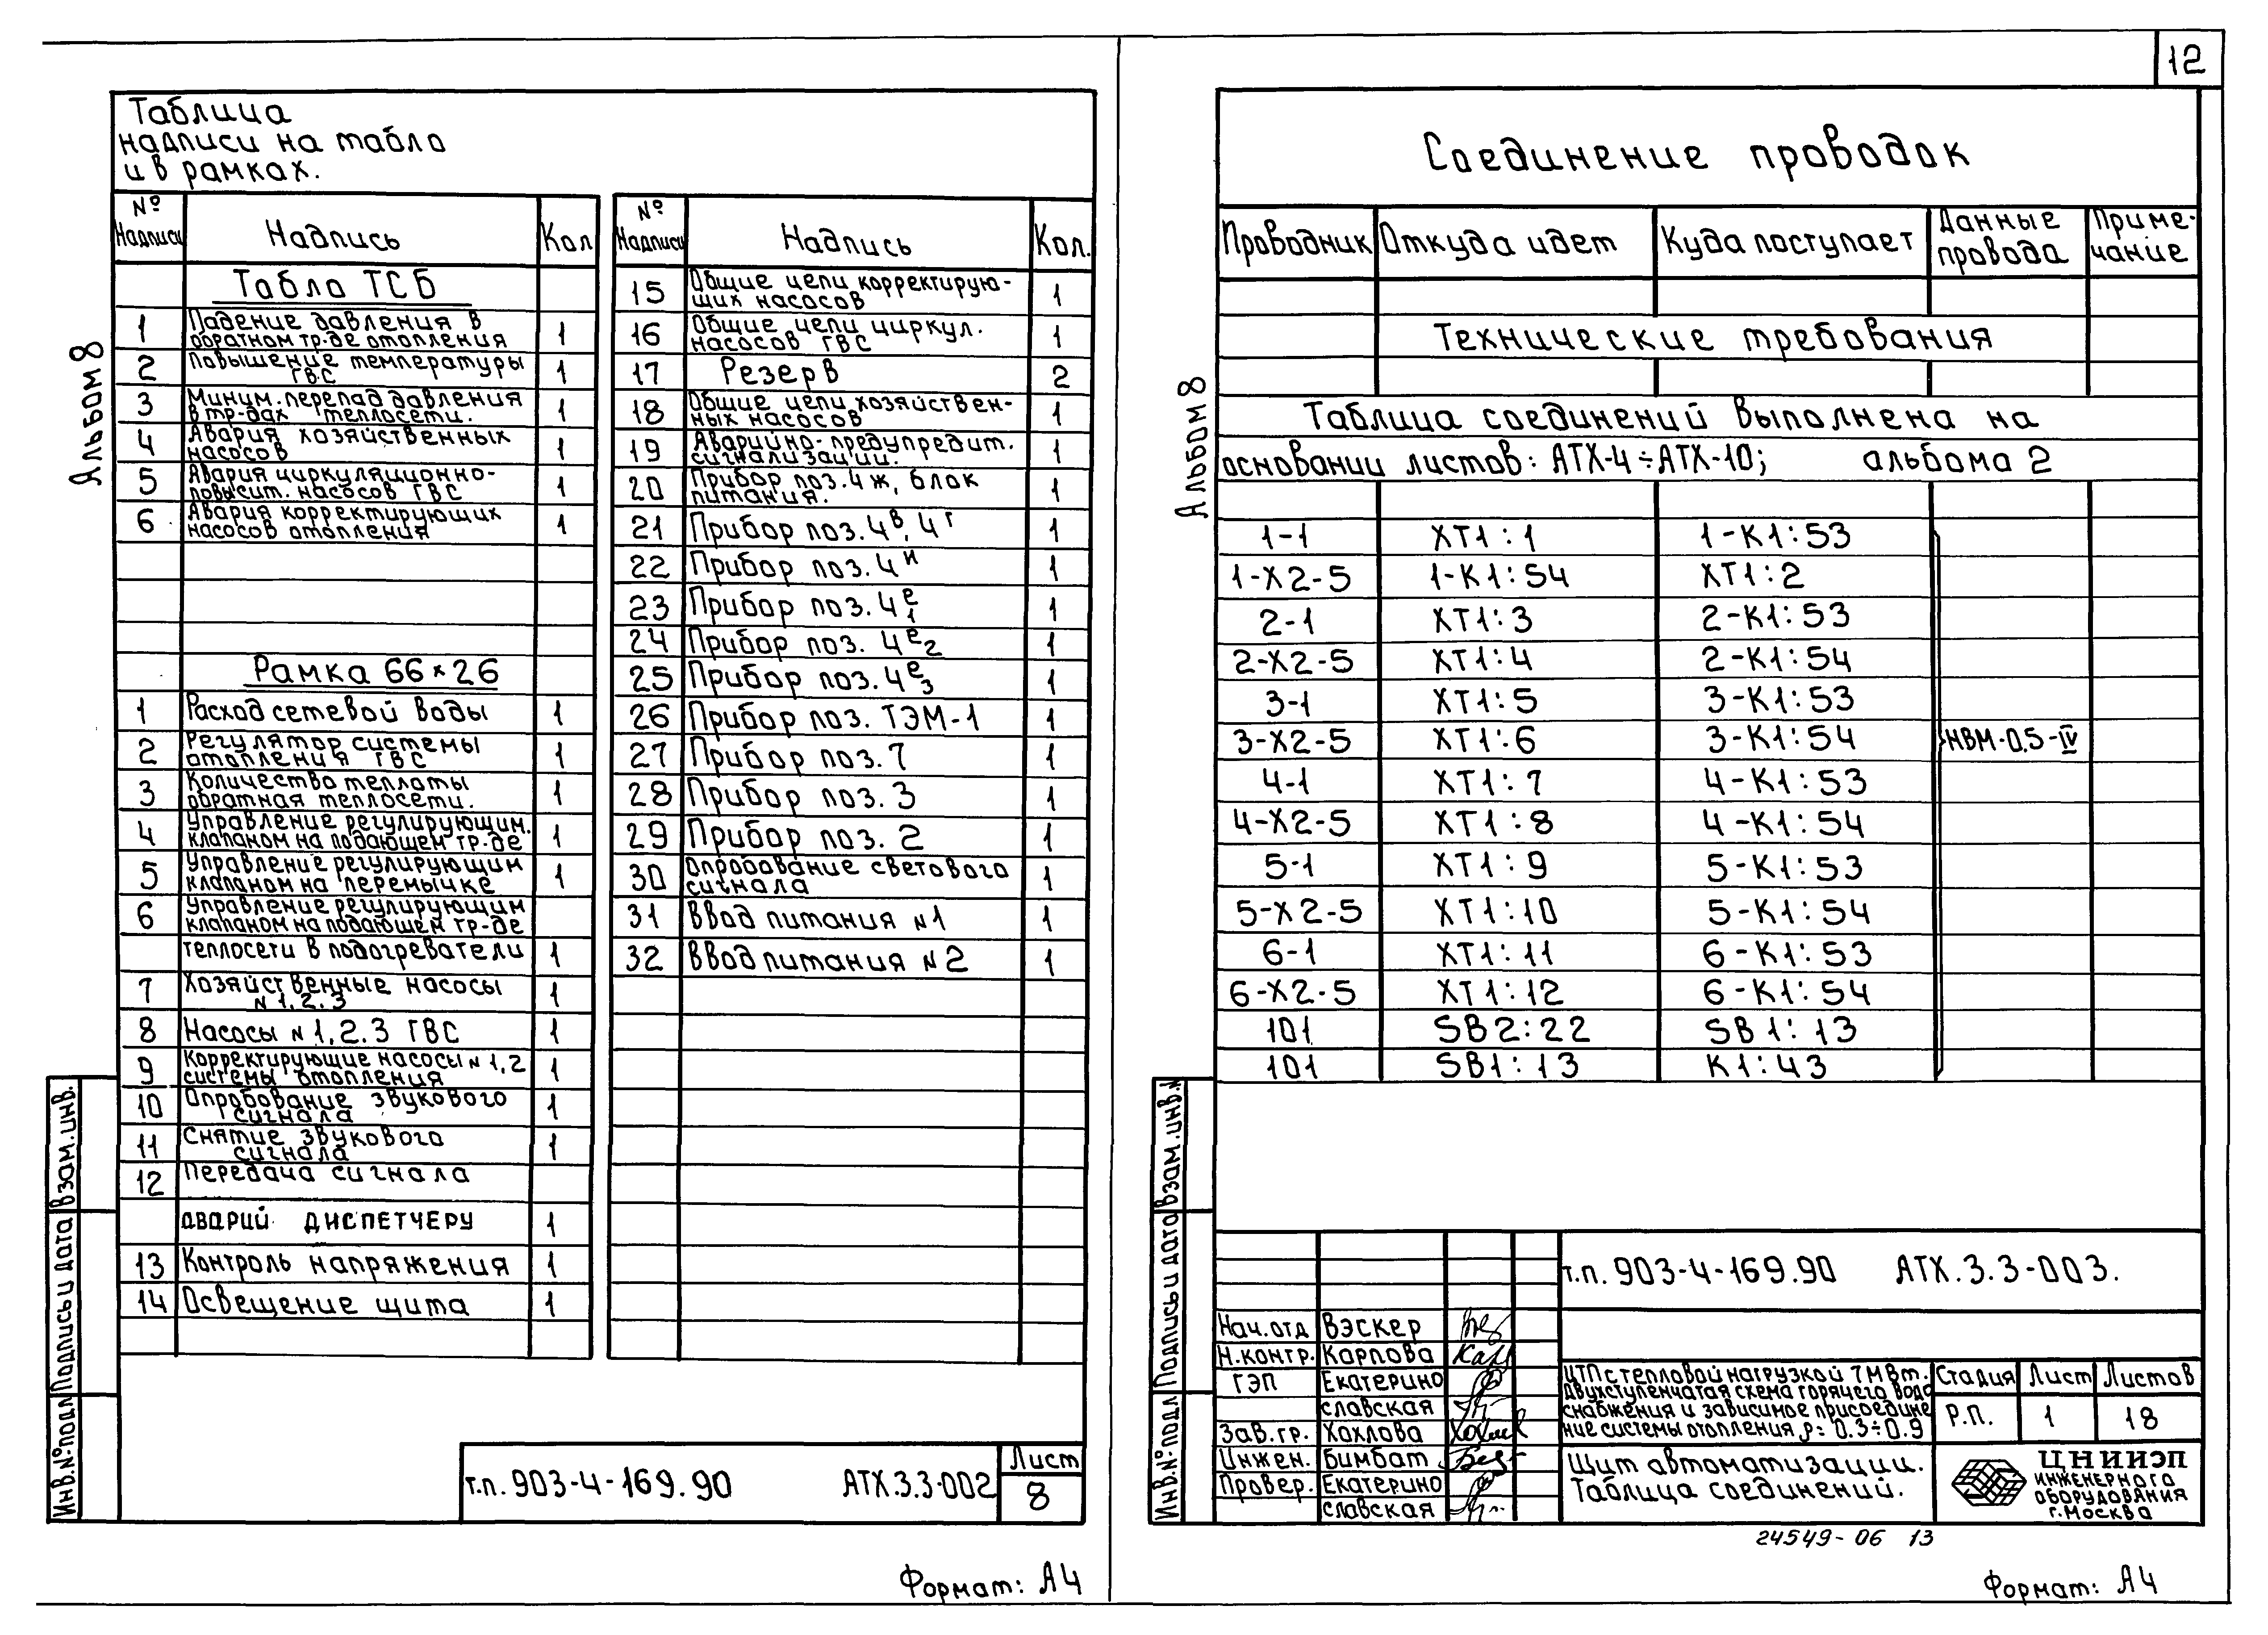 12
Таблица
надписи на табло
и в рамках.
№ Надписи Надпись Кол
Табло ТСБ
1 Падение давления в обратном тр-де отопления 1
2 Повышение температуры ГВС 1
3 Миним. перепад давления в тр-дах теплосети. 1
4 Авария хозяйственных насосов 1
5 Авария циркуляционно-повысит. насосов ГВС 1
6 Авария корректирующих насосов отопления 1
Рамка 66×26
1 Расход сетевой воды 1
2 Регулятор системы отопления ГВС 1
3 Количество теплоты обратная теплосети. 1
4 Управление регулирующим. клапаном на подающем тр-де 1
5 Управление регулирующим клапаном на перемычке 1
6 Управление регулирующим клапаном на подающем тр-де
теплосети в подогреватели 1
7 Хозяйственные насосы N 1,2.3 1
8 Насосы N 1,2.3 ГВС 1
9 Корректирующие насосы N 1,2 системы отопления 1
10 Опробование звукового сигнала 1
11 Снятие звукового сигнала 1
12 Передача сигнала
аварий диспетчеру 1
13 Контроль напряжения 1
14 Освещение щита 1
№ Надписи Надпись Кол.
15 Общие цепи корректирую-щих насосов 1
16 Общие цепи циркул. насосов ГВС 1
17 Резерв 2
18 Общие цепи хозяйствен-ных насосов 1
19 Аварийно-предупредит. сигнализации. 1
20 Прибор поз. 4ж, блок питания. 1
21 Прибор поз. 4в, 4г 1
22 Прибор поз. 4и 1
23 Прибор поз. 4е1 1
24 Прибор поз. 4е2 1
25 Прибор поз. 4е3 1
26 Прибор поз. ТЭМ-1 1
27 Прибор поз. 7 1
28 Прибор поз. 3 1
29 Прибор поз. 2 1
30 Опробование светового сигнала 1
31 Ввод питания N1 1
32 Ввод питания N2 1
Альбом 8
Взам.инв.
Подпись и дата
Инв.№подл
т.п. 903-4-169.90 АТХ.3.3-002
Лист
8
Формат: А4
Соединение проводок
Проводник Откуда идет Куда поступает Данные провода Приме-чание
Технические требования
Таблица соединений выполнена на
основании листов: АТХ-4÷АТХ-10; альбома 2
1-1 XT1:1 1-K1:53
1-X2-5 1-K1:54 XT1:2
2-1 XT1:3 2-K1:53
2-X2-5 XT1:4 2-K1:54
3-1 XT1:5 3-K1:53
3-X2-5 XT1:6 3-K1:54 НВМ-0,5-IV
4-1 XT1:7 4-K1:53
4-X2-5 XT1:8 4-K1:54
5-1 XT1:9 5-K1:53
5-X2-5 XT1:10 5-K1:54
6-1 XT1:11 6-K1:53
6-X2-5 XT1:12 6-K1:54
101 SB2:22 SB1:13
101 SB1:13 K1:43
Альбом 8
Взам.инв.N
Подпись и дата
Инв.№подл
т.п. 903-4-169.90 АТХ.3.3-003.
Нач.отд Вэскер
Н.контр. Карпова
ГЭП Екатерино
славская
Зав.гр. Хохлова
Инжен. Бимбат
Провер. Екатерино
славская
ЦТП с тепловой нагрузкой 7МВт.
двухступенчатая схема горячего водо
снабжения и зависимое присоедине
ние системы отопления ρ=0.3÷0.9
Стадия Лист Листов
Р.П. 1 18
Щит автоматизации.
Таблица соединений.
ЦНИИЭП
ИНЖЕНЕРНОГО
ОБОРУДОВАНИЯ
г.МОСКВА
24549-06 13
Формат: А4